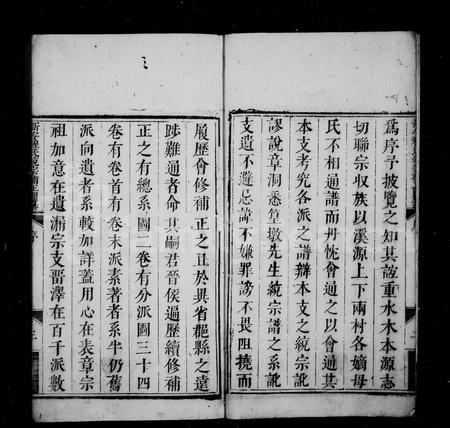 為序予披覽之知其誼重水木本源志
切聯宗収族以溪源上下兩村各嫡母
氏不相通譜而丹忱會通之以會通其
本支考究各派之譜辯本支之統宗訛
謬說章洞悉篁墩先生統宗譜之系訛
支遺不避忌諱不嫌罪謗不畏阻撓而
履歷會修補正之且於異省毗縣之遠
跡難通者命其嗣君晉侯遍歷續修補
正之有總系圖二卷有分派圖三十四
卷有卷首有卷末派素著者系半仍舊
派向遺者系較加詳蓋用心在表章宗
祖加意在遺漏宗支晋澤在百千派數
序